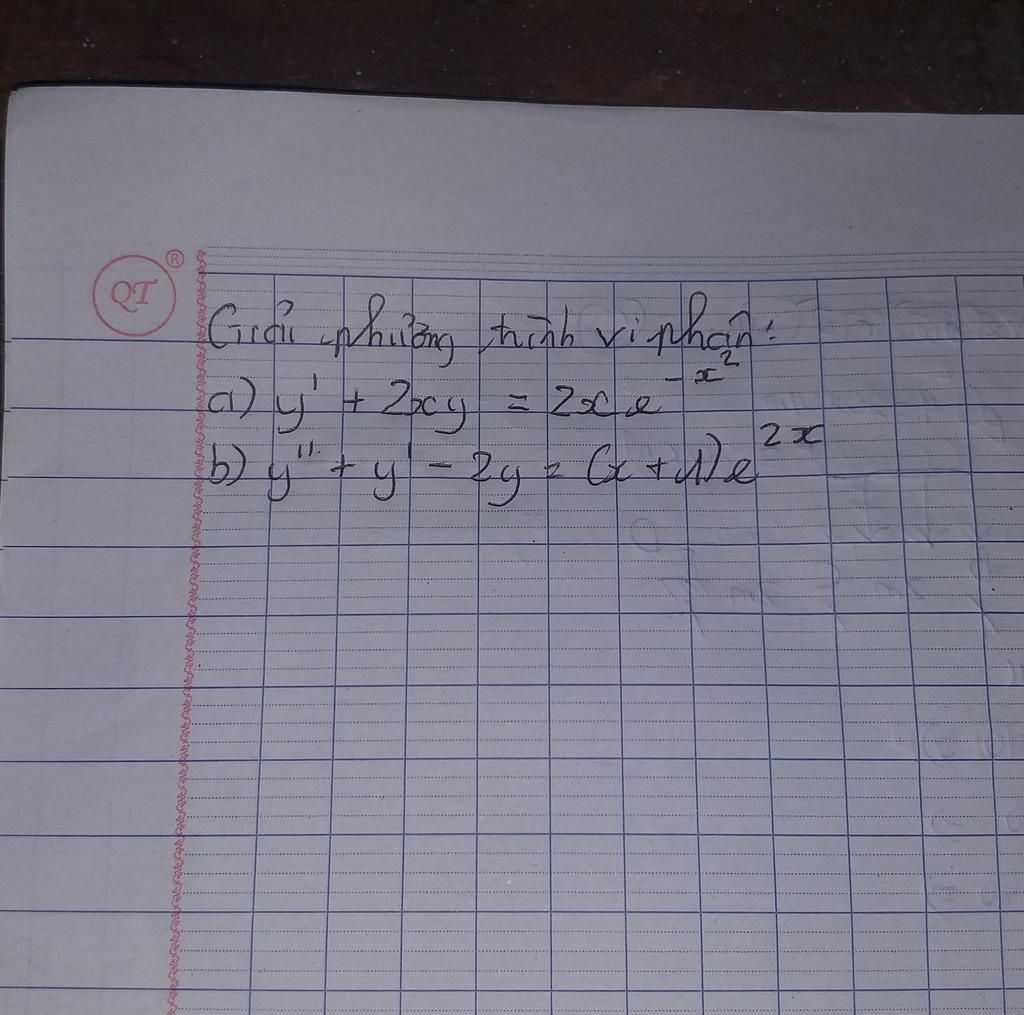 QT ®
Giải phương trình vi phân:
a) y' + 2xy = 2x e^{-x^2}
b) y'' + y' - 2y = (x + 1)e^{2x}